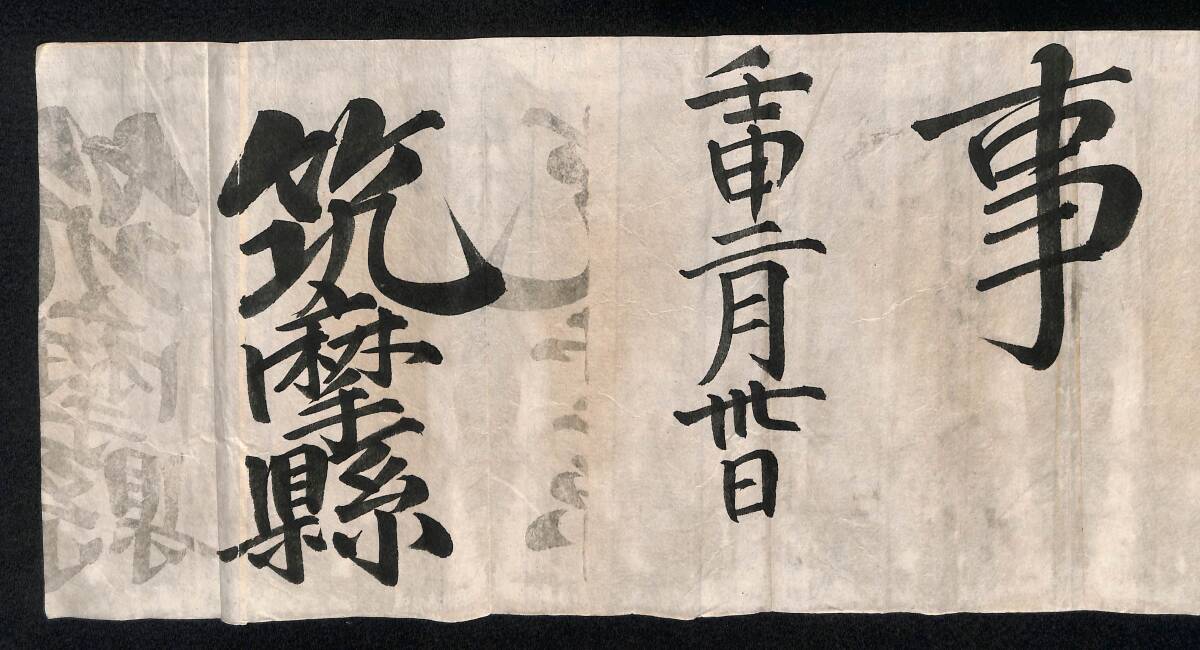 事
壬申二月卅日
筑摩縣